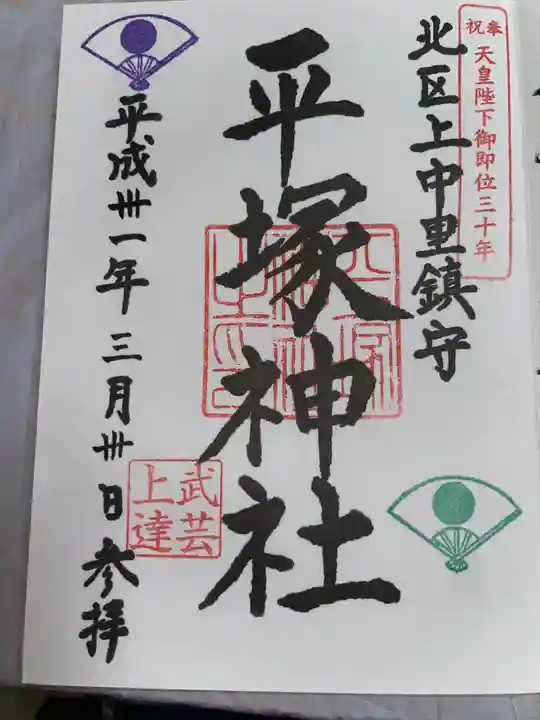 奉祝 天皇陛下御即位三十年
北区上中里鎮守
平塚神社
武芸
上達
平成卅一年三月卅日参拝